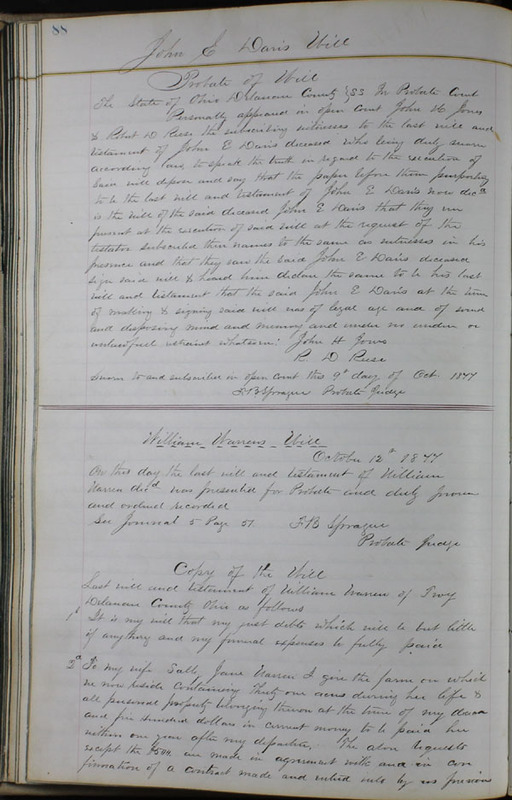 88
John E Davis Will
Probate of Will
The State of Ohio Delaware County } SS In Probate Court
Personally appeared in open Court John H Jones
& Robt D Rese the subscribing witnesses to the last will and
testament of John E Davis deceased who being duly sworn
according law to speak the truth in regard to the execution of
Said will depose and say that the paper before them purporting
to be the last will and testament of John E Davis now decd
is the will of the said deceased John E Davis that they were
present at the execution of said will at the request of the
testator subscribed their names to the same as witnesses in his
presence and that they saw the said John E Davis deceased
sign said will & heard him declare the same to be his last
will and testament that the said John E Davis at the time
of making & signing said will was of legal age and of sound
and disposing mind and memory and under no undue or
unlawful restraint whatsoever. John H Jones
R D Rese
Sworn to and subscribed in open Court this 9th day of Oct 1877
F B Sprague Probate Judge
William Warrens Will
October 12th 1877
On this day the last will and testament of William
Warren decd was presented for Probate and duly proven
and ordered recorded
See Journal 5 Page 51 F B Sprague
Probate Judge
Copy of the Will
Last will and testament of William Warren of Troy
Delaware County Ohio as follows
1st It is my will that my just debts which will be but little
if anything and my funeral expenses be fully paid
2d To my wife Sally Jane Warren I give the farm on which
we now reside Containing Thirty one acres during her life &
all personal property belonging thereon at the time of my decease
and five hundred dollars in current money to be paid her
within one year after my departure. The above bequests
except the $500. are made in agreement with and in con
firmation of a contract made and entered into by us previous